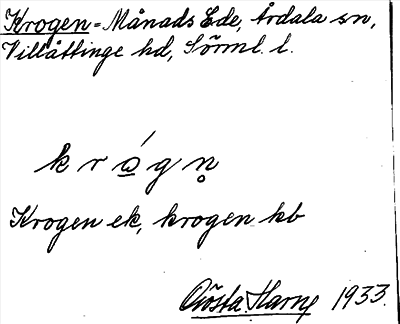 Krogen = Månads Ede, Årdala sn,
Villåttinge hd, Sörml. l.
k r ó̲ g n̥
Krogen ek, krogen kb
Gösta Harne 1933.